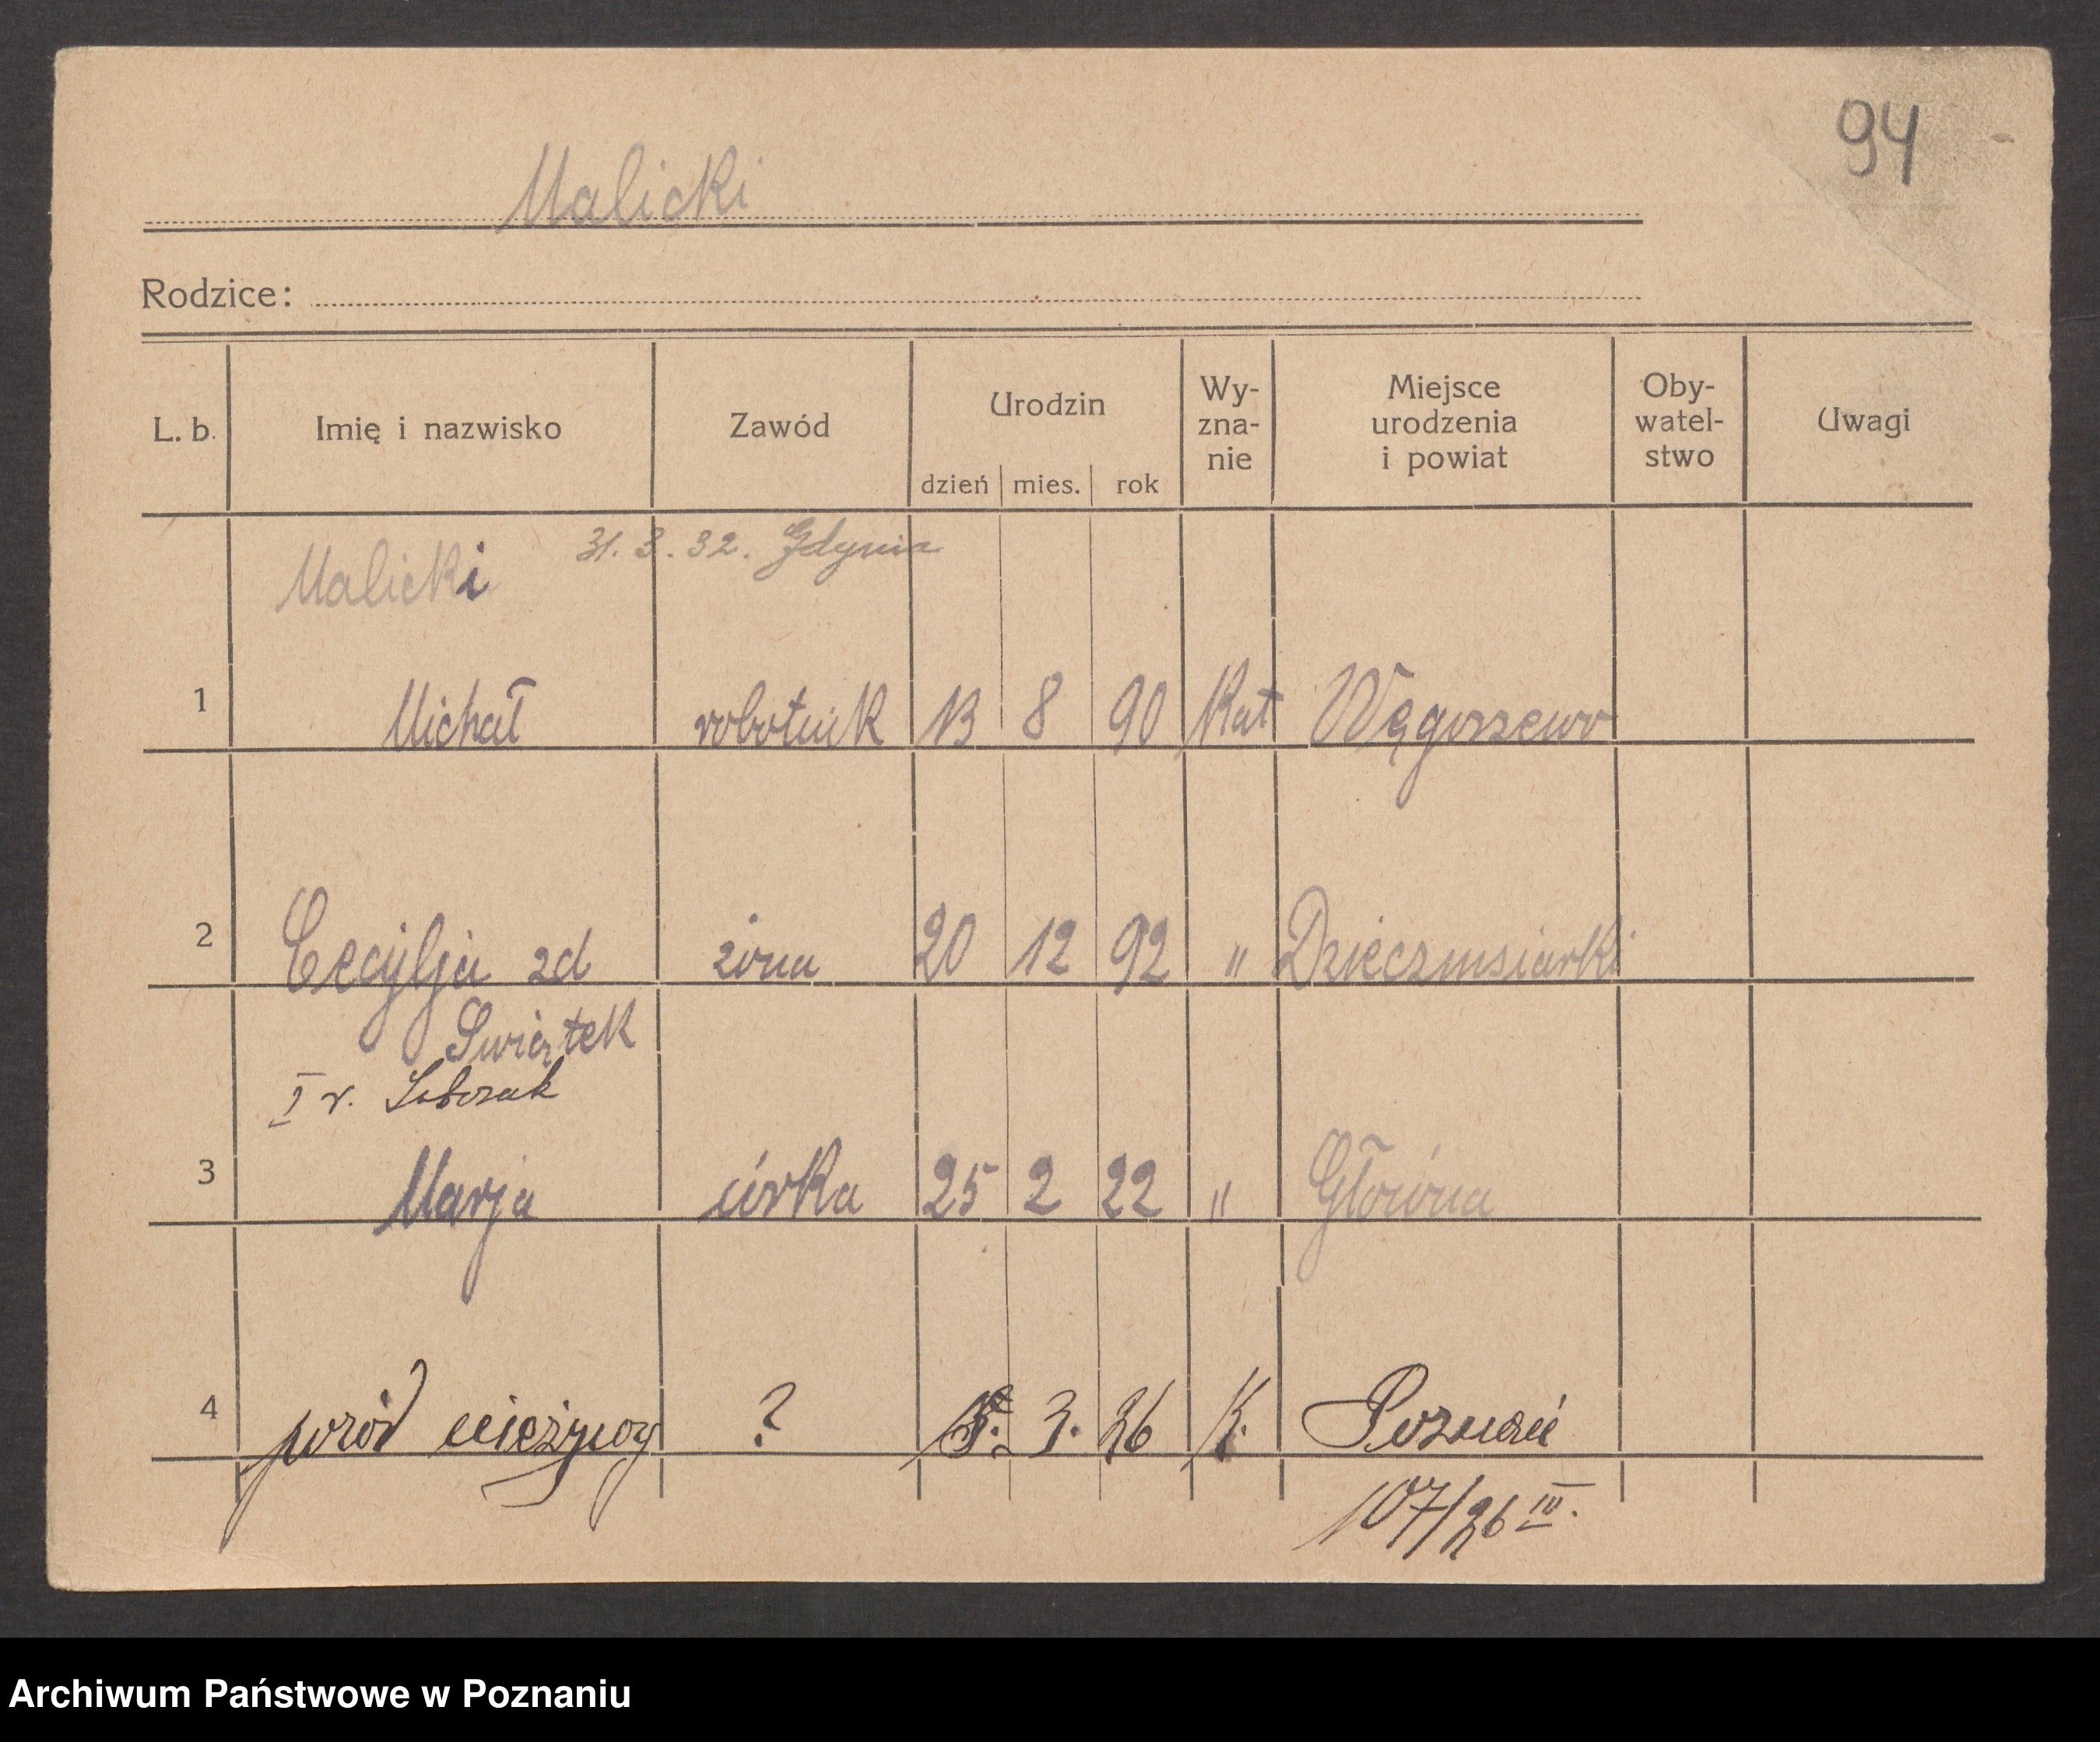 94
Malicki
Rodzice:
L. b. Imię i nazwisko Zawód Urodzin dzień mies. rok Wy-zna-nie Miejsce urodzenia i powiat Oby-watel-stwo Uwagi
31. 3. 32. Gdynia
Malicki
1 Michał robotnik 13 8 90 Kat Węgorzewo
2 Cecylja zd żona 20 12 92 " 
Swiątek
I v. Sobczak
3 Marja córka 25 2 22 " Główna
4 poród nieżywy ? 3. 26 K. Poznań
107/26 III.
Archiwum Państwowe w Poznaniu